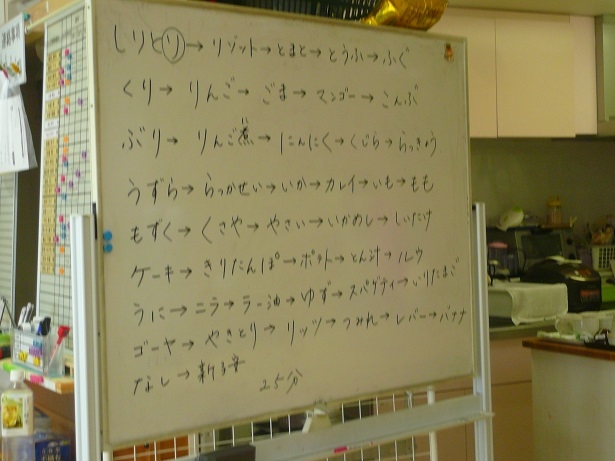 しりとり→リゾット→とまと→とうふ→ふぐ
くり→りんご→ごま→マンゴー→こんぶ
ぶり→りんご煮→にんにく→くじら→らっきょう
うずら→らっかせい→いか→カレイ→いも→もも
もずく→くさや→やさい→いかめし→しいたけ
ケーキ→きりたんぽ→ポテト→とん汁→ルウ
うに→ニラ→ラー油→ゆず→スパゲティ→いりたまご
ゴーヤ→やきとり→リッツ→つみれ→レバー→バナナ
なし→新
25分